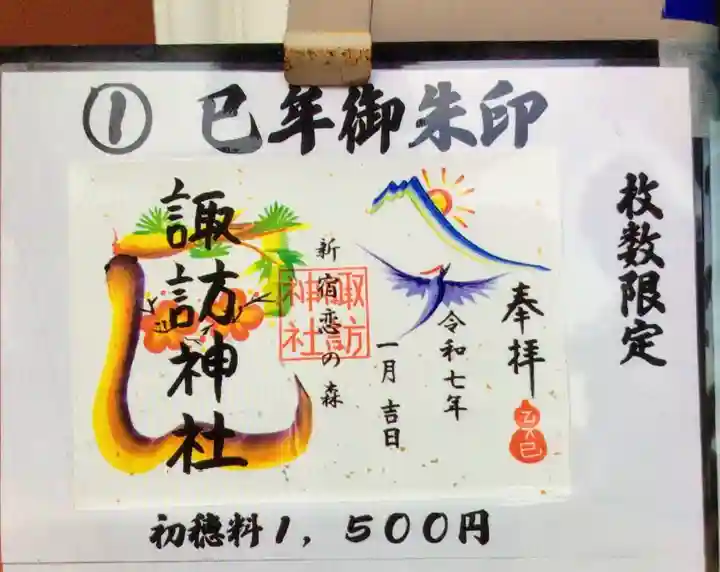 ① 巳年御朱印
枚数限定
奉拝
乙巳
令和七年
一月 吉日
新宿恋の森
諏訪
神社
諏訪神社
初穂料1,500円